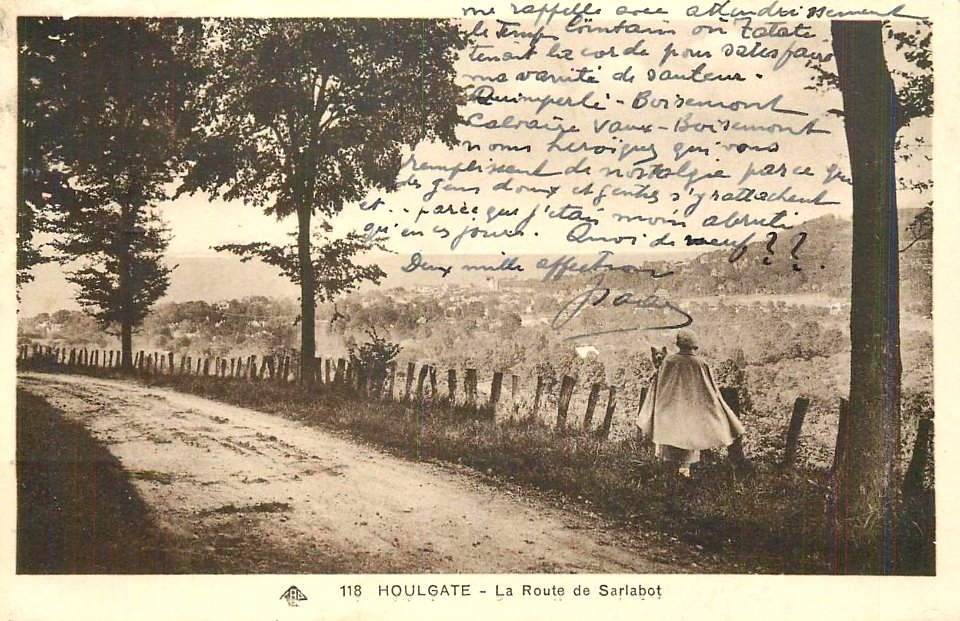 me rappelle avec attendrissement
le temps lointain où Tatate
tenait la corde pour satisfaire
ma vanité de sauteur.
Quimperlé - Boisemont
Calvaire Vaux - Boisemont
noms héroïques qui vous
remplissent de nostalgie parce que
des gens doux et gentils s'y rattachent
et.. parce que j'étais moins abruti
qu'en ces jours. Quoi de neuf??.
Deux mille affections
118 HOULGATE - La Route de Sarlabot